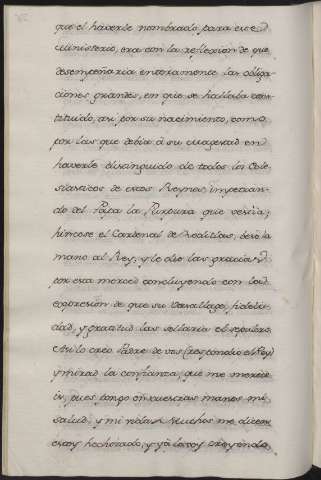 que el haverle nombrado para este
Ministerio, era con la reflexion de que
desempeñaria enteramente las obliga-
ciones grandes, en que se hallaba cons-
tituido, asi por su nacimiento, como
por las que debia á su Magestad en
haverle distinguido de todos los Ecle-
siasticos de estos Reynos, impetran-
do del Papa la Purpura que vestia;
hincose el Cardenal de rodillas, besó la
mano al Rey, y le dio las gracias
por esta merced concluyendo con la
expresion de que su Vasallage, fideli-
dad, y gratitud las sellaria el sepulcro.
Asi lo creo Padre de vos (respondio el Rey)
y mirad la confianza, que me mereceis
is, pues pongo en vuestras manos mi
salud, y mi vida: Muchos me dicen
estoy hechizado, y yá lo voy creyendo,